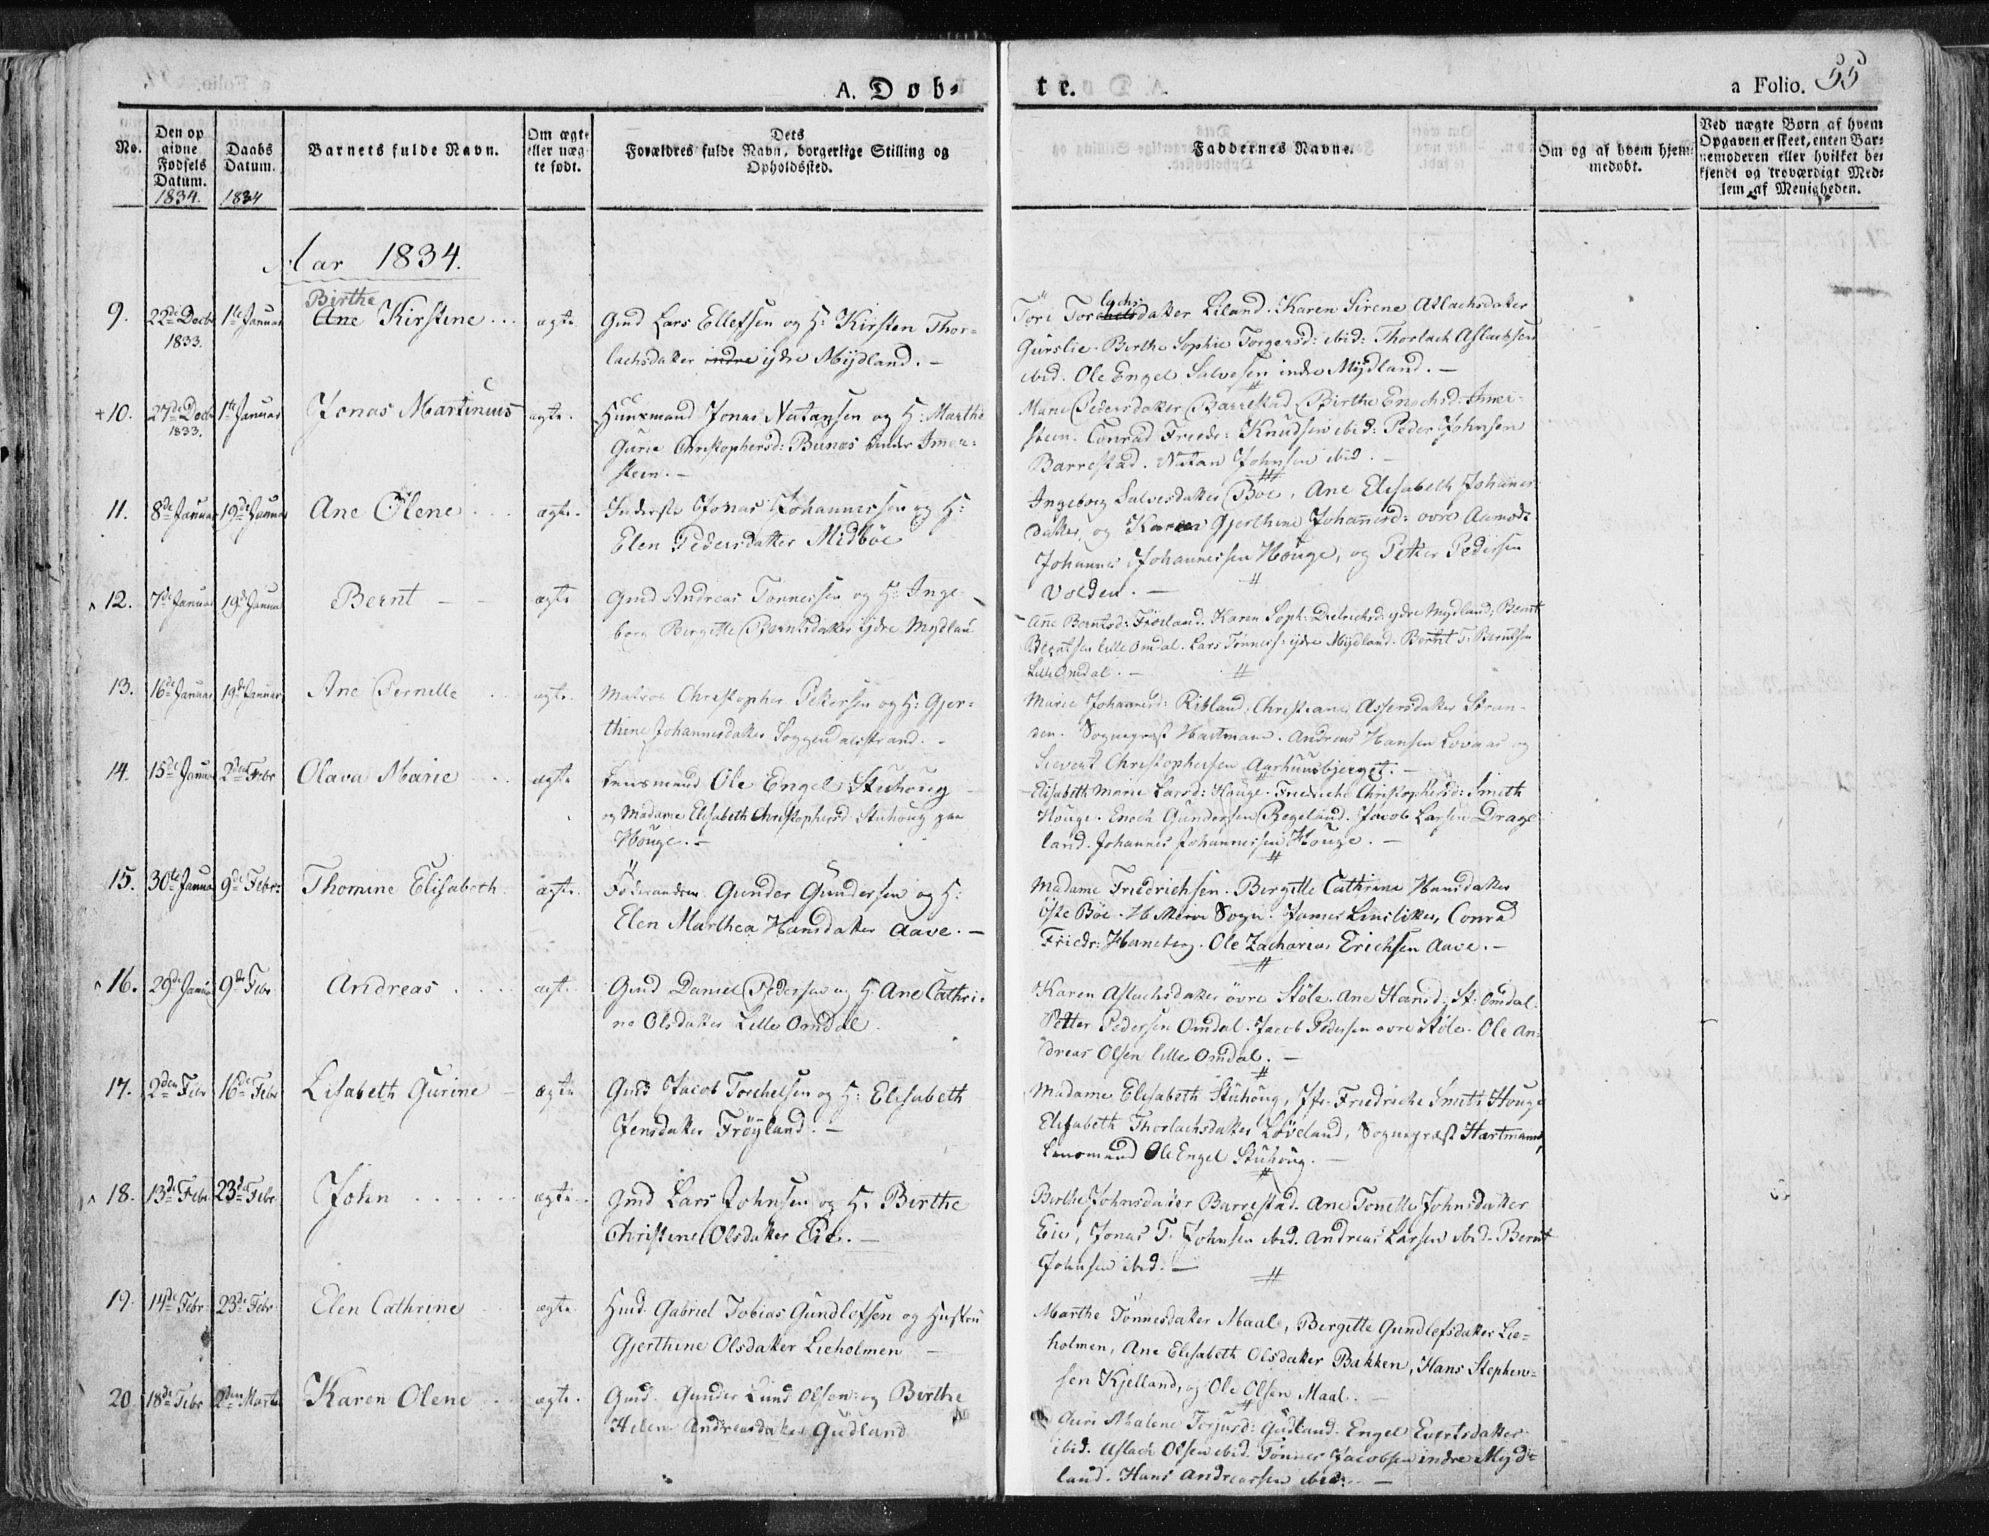 A. Døb-
te.
a Folio. 55
No.
Den op
givne
Fødsels
Datum.
1834.
Daabs
Datum.
1834
Barnets fulde Navn.
Om ægte
eller uæg
te født.
Dets
Forældres fulde Navn, borgerlige Stilling og
Opholdssted.
Faddernes Navne.
Om og af hvem hjem-
medøbt.
Ved uægte Børn af hvem
Opgaven er skeet, enten Bar-
nemoderen eller hvilket be-
kjendt og troværdigt Med-
lem af Menigheden.
Aar 1834.
9. 22de Decbr 1833. 1ste Januar
Birthe
Ane Kirstine ... ægte
Gmd Lars Ellefsen og H: Kirsten Thor-
lachsdatter indre ydre Mydland. -
Tori Torlachsdatter Liland. Karen Sirene Aslachsdatter
Gurslie. Berthe Sophie Torgersd: ibid: Thorlach Aslachsen
ibid. Ole Engel Salvesen indre Mydland. -
+10. 27de Decbr 1833. 1ste Januar Jonas Martinius ægte.
Huusmand Jonas Natansen og H: Marthe
Gurie Christophersd: Bunæs under Imer-
stein. -
Marie Pedersdatter Barrestad. Birthe Enochsd. Imer-
stein. Conrad Friedr: Knudsen ibid: Peder Johnsen
Barrestad. Natan Johnsen ibid. -
11. 8de Januar 19de Januar Ane Olene ægte.
Inderste Jonas Johannessen og H:
Elen Pedersdatter Midbøe
Ingeborg Salvesdatter Bøe, Ane Elisabeth Johannes-
datter, og Karen Gjerthine Johannesd: øvre Aamodt
Johannes Johannessen Houge, og Petter Pedersen
Volden. -
12. 7de Januar 19de Januar Bernt - - ægte
Gmd Andreas Tønnessen og H: Inge-
borg Bergitte Berntsdatter ydre Mydland
Ane Berntsd: Frøiland. Karen Soph: Dietrichsd: ydre Mydland; Bernt
Berntsen lille Omdal. Lars Tønness: ydre Mydland. Berntt T: Berntsen
Lille Omdal. -
13. 16de Januar 19de Januar Ane Pernille ægte.
Matros Christopher Petersen og H: Gjer-
thine Johannesdatter Soggendalsstrand. -
Marie Johannesd: Ribland, Christiane Assersdatter Stran-
den. Sognepræst Hartmann. Andreas Hansen Lovaas og
Sievert Christophersen Aarhuusbjerget. -
14. 15de Januar 2den Febr Olava Marie ægte
Lensmand Ole Engel Stuhoug
og Madame Elisabeth Christophersd: Stuhoug paa
Houge. -
Elisabeth Marie Larsd: Houge. Friedriche Christophersd: Smith
Houge. Enoch Gundersen Regeland. Jacob Larsen Drage-
land. Johannes Johannessen Houge. -
15. 30te Januar 9de Febr: Thomine Elisabeth ægte.
Føderaadsm: Gunder Gundersen og H:
Elen Marthea Hansdatter Aave. -
Madame Friedrichsen. Bergitte Cathrine Hansdatter
Østebøe Sogn. James Conrad
Friedr: Henneberg. Ole Zacharias Erichsen Aave. -
16. 29de Januar 9de Febr Andreas ægt.
Gmd Daniel Pedersen og H. Ane Cathri-
ne Olsdatter Lille Omdal.
Karen Aslachsdatter øvre Støle. Ane Hansd: St: Omdal.
Petter Pedersen Omdal. Jacob Pedersen øvre Støle. Ole An-
dreas Olsen lille Omdal. -
17. 2den Febr 16de Febr Lisabeth Gurine - ægte
Gmd Jacob Torchelsen og H: Elisabeth
Jensdatter Frøyland. -
Madame Elisabeth Stuhoug, Jfr. Friedriche Smith Houge
Elisabeth Thorlachsdatter Løveland, Sognepræst Hartmann,
Lensmand Ole Engel Stuhoug. -
18. 13de Febr 23de Febr John ...... ægte.
Gmd Lars Johnsen og H. Birthe
Christine Olsdatter Eie. -
Berthe Johnsdatter Barrestad. Ane Tonette Johnsdatter
Eie, Jonas T. Johnsen ibid. Andreas Larsen ibid. Bernt
Johnsen ibid. -
19. 14de Febr. 23de Febr. Elen Cathrine ægte.
Hmd. Gabriel Tobias Gundlefsen og Hustru
Gjerthine Olsdatter Lieholmen -
Marthe Tønnesdatter Maal, Bergitte Gundlefsdatter Lie-
holmen, Ane Elisabeth Olsdatter Bakken, Hans Stephen-
sen Kjelland, og Ole Olsen Maal. -
20 18de Febr 2den Marts Karen Olene ægte.
Gmd. Gunder Lund Olsen og Berthe
Helene Andreasdatter Gudland
Guri Malene Torjusd: Gudland. Engel Evertsdatter
ibid. Aslach Olsen ibid. Tønnes Jacobsen indre Myd-
land. Hans Andreassen ibid: -